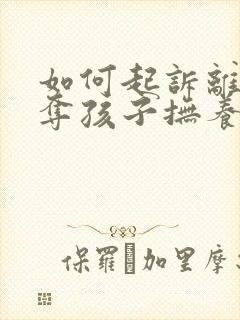 如何起訴離
奪孩子撫養
保羅 加里摩